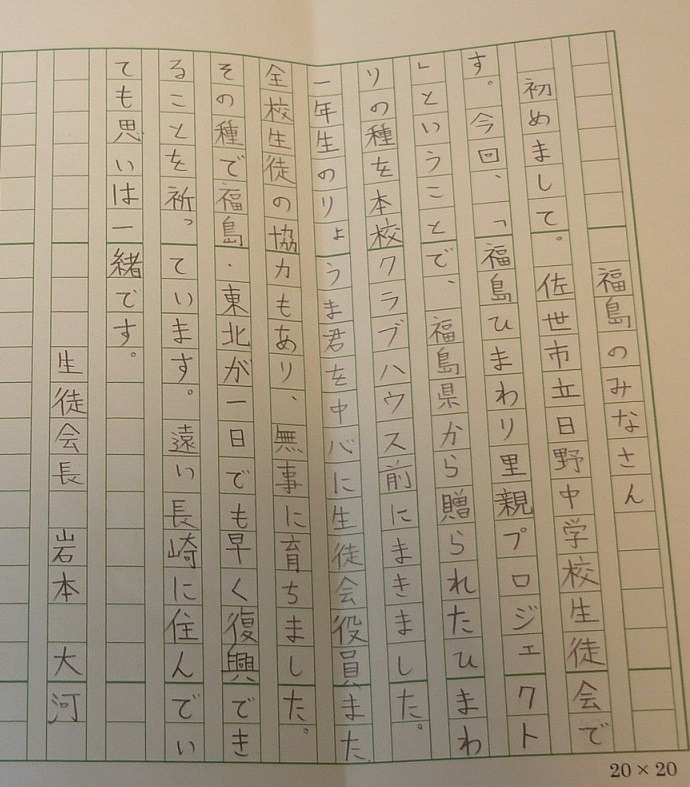 福島のみなさん
初めまして。佐世市立日野中学校生徒会で
す。今回、「福島ひまわり里親プロジェクト
」ということで、福島県から贈られたひまわ
りの種を本校クラブハウス前にまきました。
一年生のりょうま君を中心に生徒会役員また
全校生徒の協力もあり、無事に育ちました。
その種で福島・東北が一日でも早く復興でき
ることを祈っています。遠い長崎に住んでい
ても思いは一緒です。
生徒会長 岩本 大河
20×20